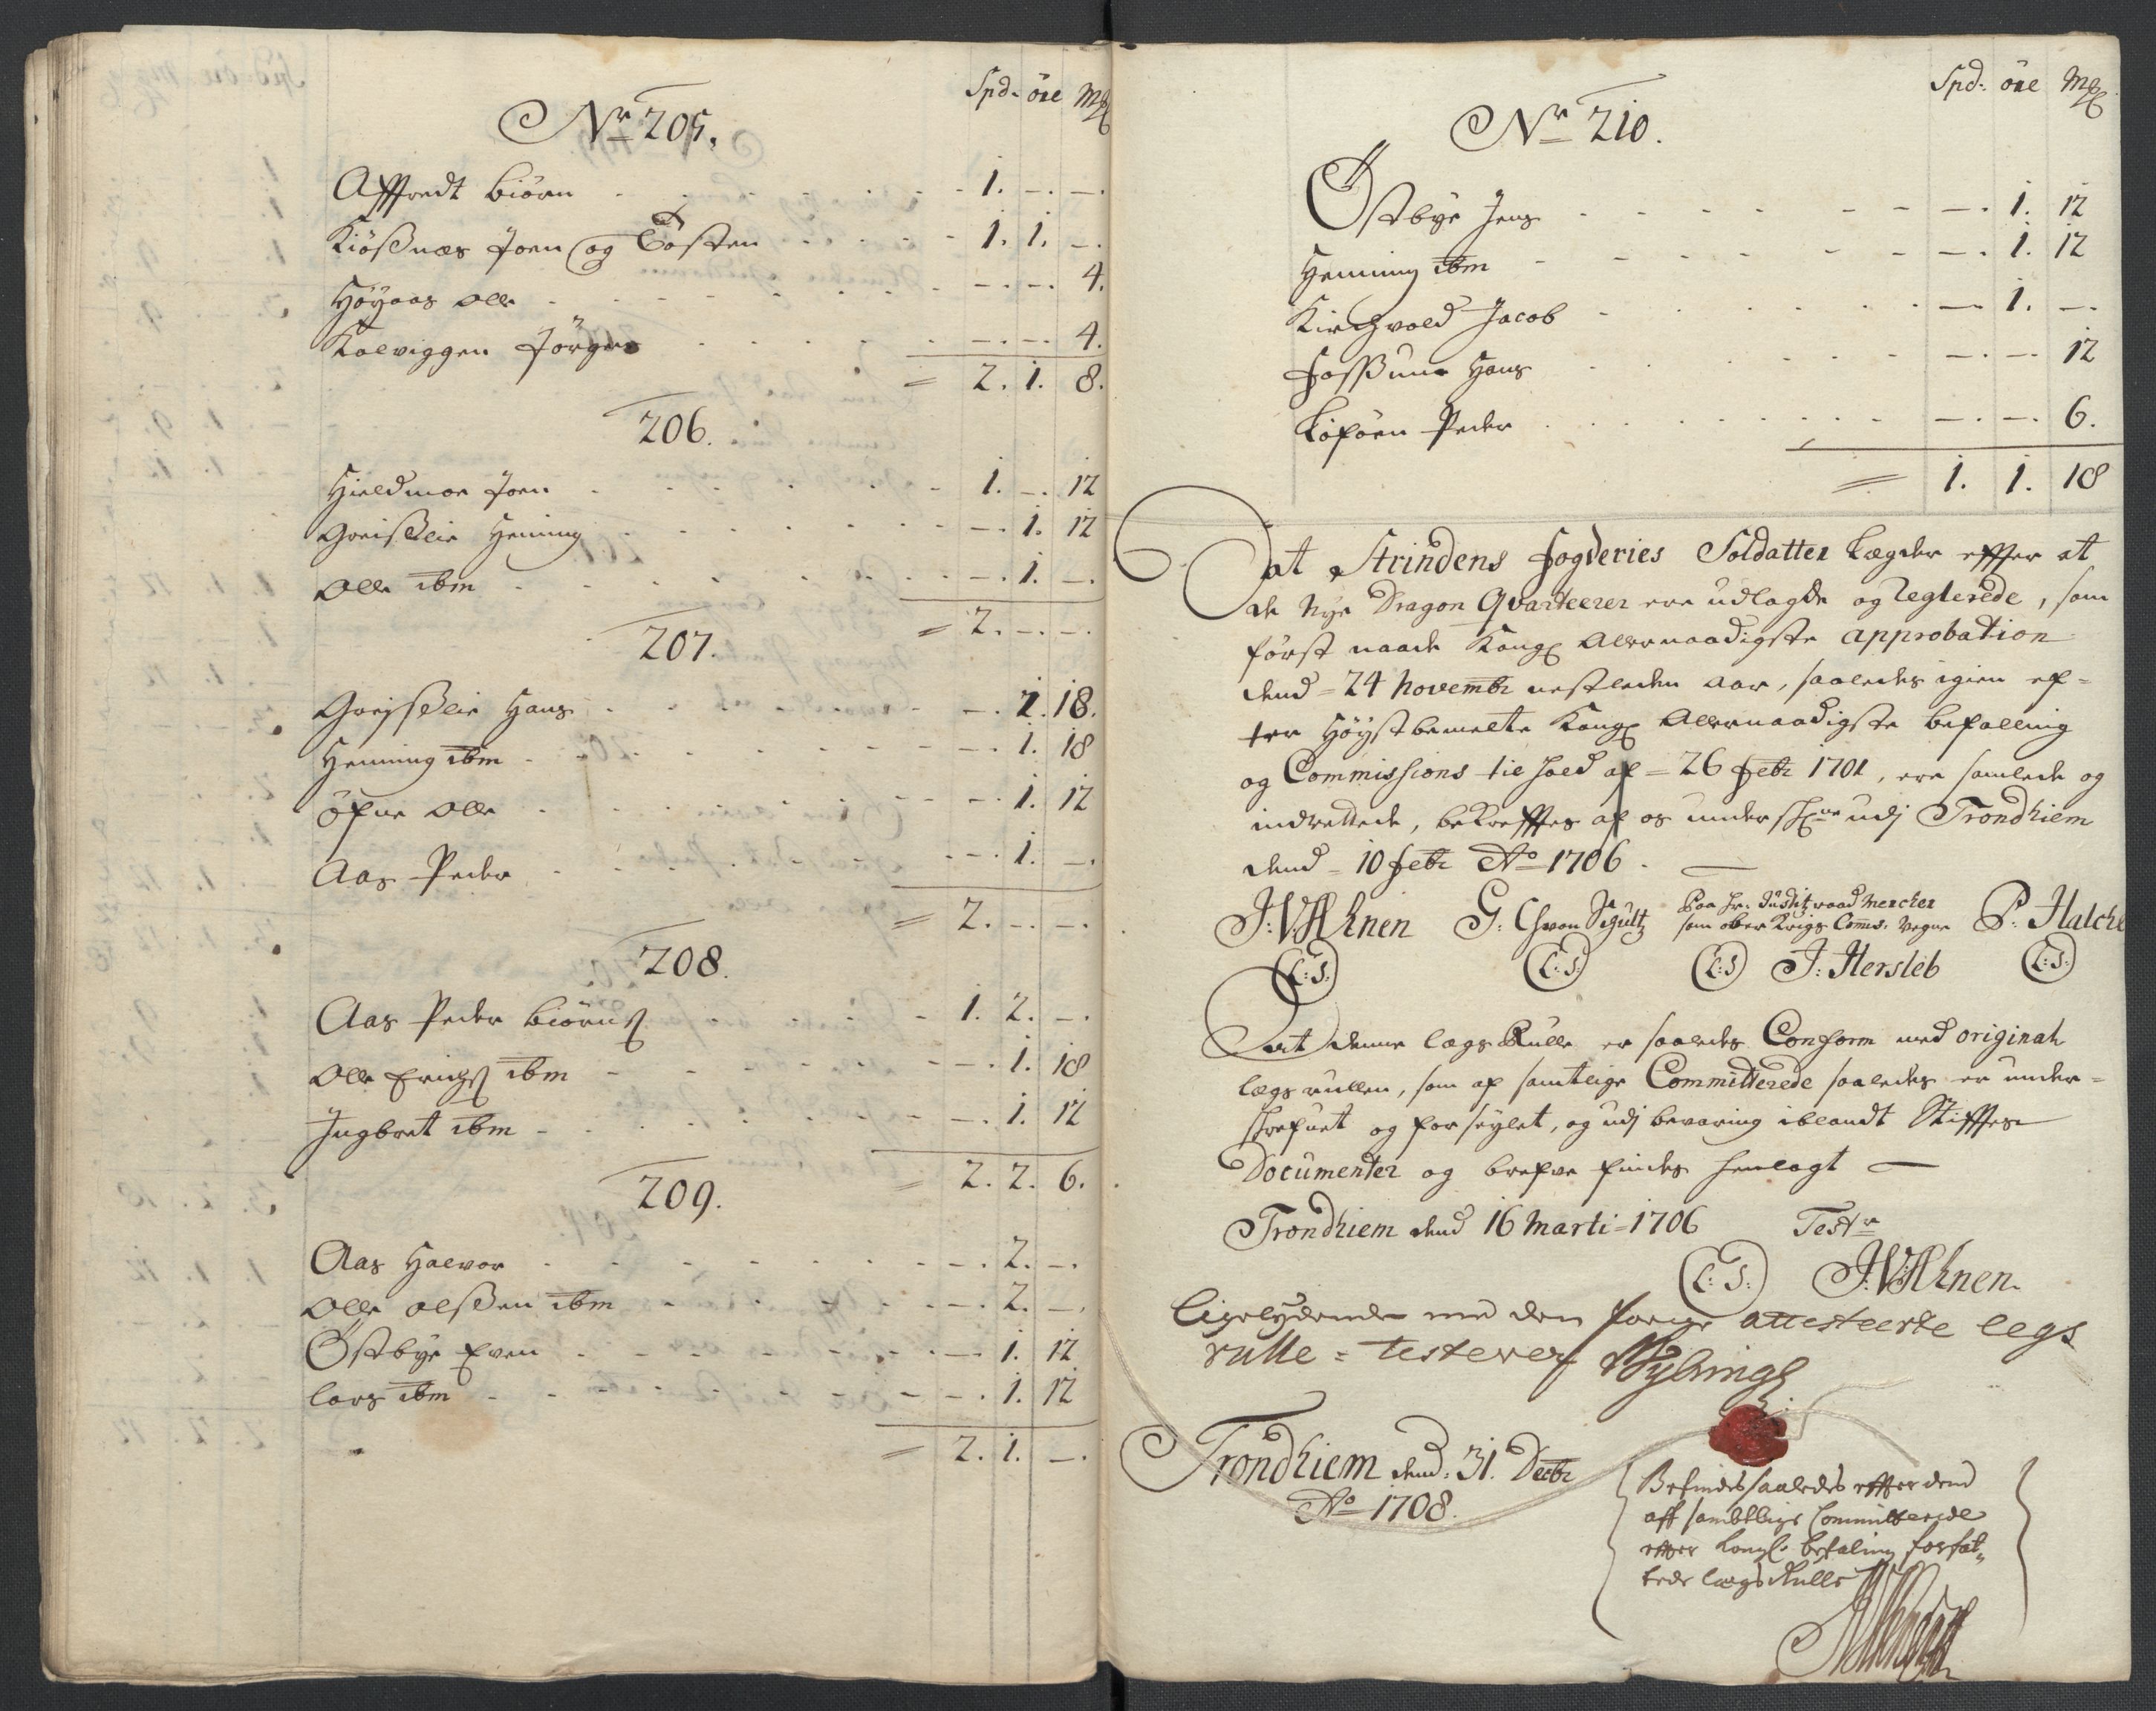 Spd. öre Mk
Nr 205.
Affredt Biörn - 1. -. -.
Kiössnæs Joen og Tosten - 1. 1. -.
Höyaas Olle - -. -. 4.
Kalviggen Jörgen - -. -. 4.
= 2. 1. 8.
206.
Hieldmoe Joen - 1. -. 12
Greisslie Henning - -. 1. 12
Olle ibm - -. 1. -.
= 2. -. -.
207.
Greisslie Hans - -. 1. 18.
Henning ibm - -. 1. 18
Öfne Olle - -. 1. 12
Aas Peder - -. 1. -.
= 2. -. -.
208.
Aas Peder Biörns - 1. 2. -.
Olle Erichs ibm - -. 1. 18
Ingbret ibm - -. 1. 12
= 2. 2. 6.
209.
Aas Halvor - -. 2. -.
Olle Olssen ibm - -. 2. -.
Östbye Even - -. 1. 12
Lars ibm - -. 1. 12
= 2. 1. -.
Spd. öre Mk
Nr 210.
Östbye Jens - -. 1. 12
Henning ibm - -. 1. 12
Kirchvold Jacob - - 1. -.
Fossum Hans - -. -. 12
Peder - -. -. 6.
= 1. 1. 18
Dat Strindens Fogderies Soldatter Lægder effter at
de Nye Dragon Qvarteerer ere udlagde og Reglerede, som
först naade Kongl Allernaadigste approbation
dend = 24 Novembr nestleden Aar, saaledes igien ef=
ter Höystbemelte Kongl Allernaadigste befalling
og Commissions til hold af = 26 Febr 1701, ere samlede og
indrettede, bekreffftes af os under skrne udj Trondhiem
dend = 10 Febr Ao 1706.
J: V: Ahnen G: C von Schultz Paa Hr. Justitzraad Mercker
som ober Krigs Comis: Vegne
(L:S:) (L:S:) (L:S) J: Hersleb (L:S:)
At denne Lægs Rulle er saaledes Conform med original
Lægs rullen, som af samtlige Committerede saaledes er under=
skrefuet og forseylet, og udj bevaring iblandt Stifftes
Documenter og brefve findes henlagt
Trondhiem dend 16 Marti = 1706 Testr
(L: S:) J: V: Ahnen.
Ligelydende med den forige attesteerte legs
rulle = testerer
Trondhiem dend: 31. Decbr
Ao 1708.
Befindes saaledes effter dend
aff sambtlige Committerede
effter Kongl. befaling forfat,,
tede lægs Rulle